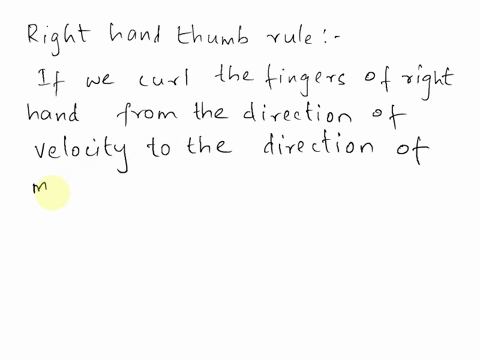 Right hand thumb rule :-
If we curl the fingers of right
hand from the direction of
velocity to the direction of
m